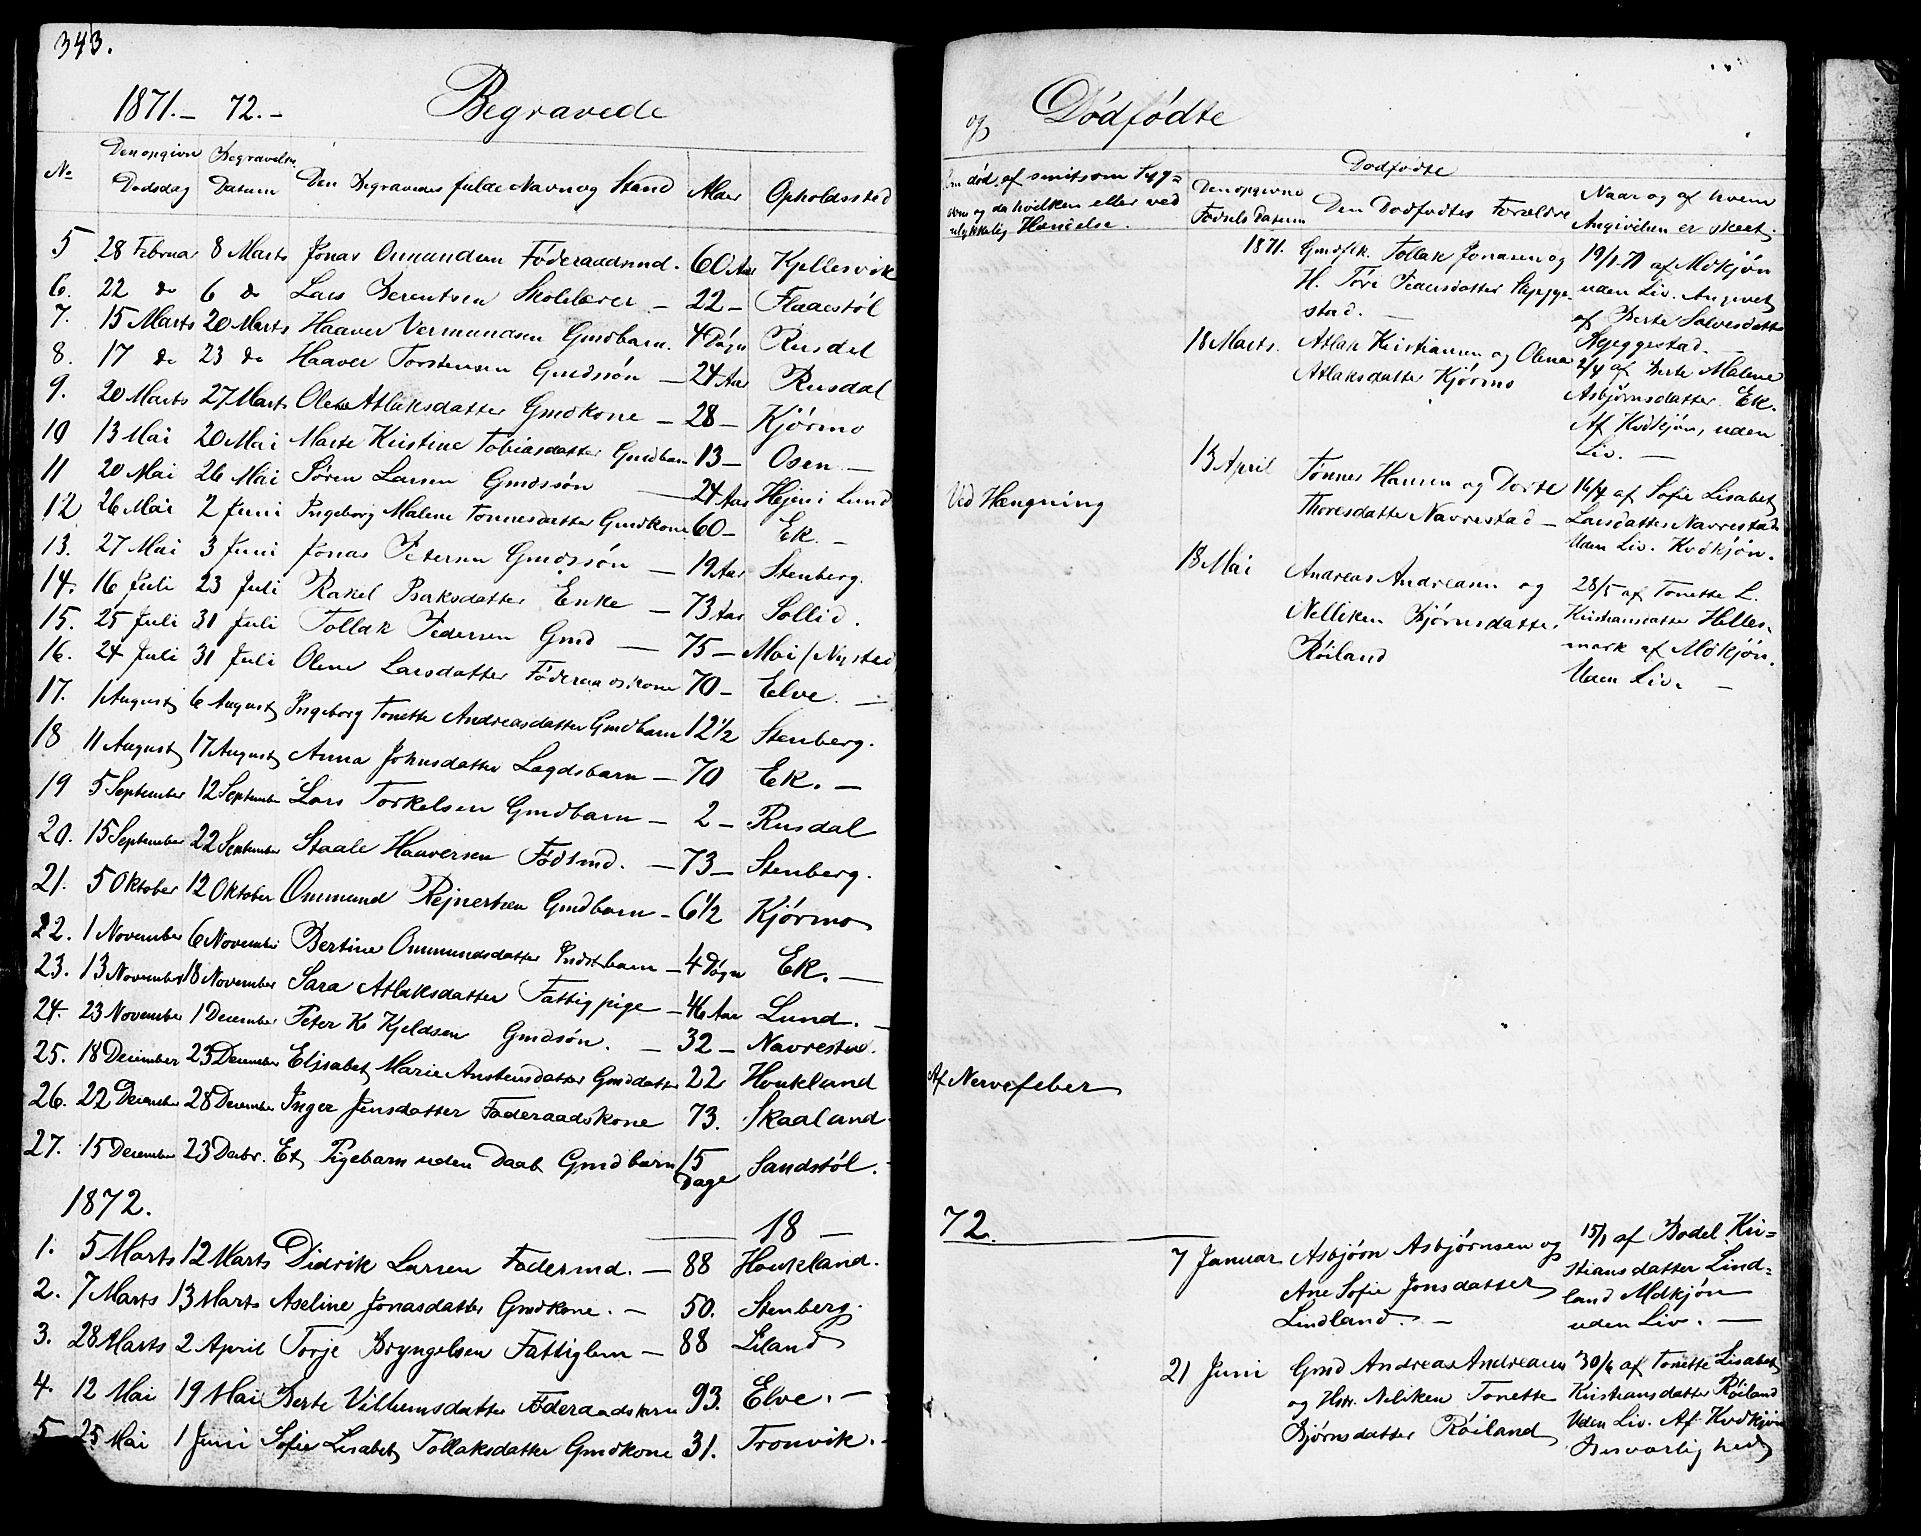 343.
1871.- 72.- Begravede
No Den opgivne Dødsdag Begravelses Datum Den Begravedes fulde Navn og Stand Alder Opholdssted
5 28 Februar 8 Marts Jonas Ommundsen Föderaadsmd. 60 Aar Kjellesvik
6. 22 do 6 do Lars Berentsen Skolelærer - 22 - Flaaestöl
7. 15 Marts 20 Marts Haaver Vermundsen Gmdbarn. 4 Dögn Rusdal
8. 17 do 23 do Haaver Torstensen Gmdssön - 24 Aar Rusdal
9. 20 Marts 27 Marts Olene Atlaksdatter Gmdkone - 28 - Kjörmo
10 13 Mai 20 Mai Marte Kristine Tobiasdatter Gmdbarn 13 - Osen -
11 20 Mai 26 Mai Sören Larsen Gmdssön - 24 Aar Hejen i Lund
12 26 Mai 2 Juni Ingeborg Malene Tonnesdatter Gmdkone 60 - Ek. -
13. 27 Mai 3 Juni Jonas Petersen Gmdssön - 19 Aar Stenberg.
14. 16 Juli 23 Juli Rakel Isaksdatter Enke - 73 Aar Sollid.
15. 25 Juli 31 Juli Tollak Pedersen Gmd - 75 - Moi/Nystad
16. 24 Juli 31 Juli Olene Larsdatter Föderaadskone 70 - Elve. -
17. 1 August 6 August Ingeborg Tonette Andreasdatter Gmdbarn 12 1/2 Stenberg.
18 11 August 17 August Anna Johnsdatter Lægdsbarn - 70 Ek. -
19 5 September 12 September Lars Torkelsen Gmdbarn - 2 - Rusdal
20. 15 September 22 September Staale Haaversen Födsmd. - 73 - Stenberg.
21. 5 Oktober 12 Oktober Ommund Rejnertsen Gmdbarn - 6 1/2 Kjörmo
22. 1 November 6 November Bertine Ommundsdatter Indstbarn - 4 Dögn Ek. -
23. 13 November 18 November Sara Atlaksdatter Fattigpige - 46 Aar Lund. -
24. 23 November 1 December Peter K. Kjeldsen Gmdsön. - 32 - Navrestad.
25. 18 December 23 December Elisabet Marie Anstensdatter Gmddatter 22 Houkland
26. 22 December 28 December Inger Jensdatter Föderaadskone 73. Skaaland
27. 15 December 23 Decbr. Et Pigebarn uden Daab Gmdbarn 15 Dage Sandstöl.
1872.
18 -
1. 5 Marts 12 Marts Didrik Larsen Födermd. - 88 Houkland.
2. 7 Marts 13 Marts Aseline Jonasdatter Gmdkone. - 50. Stenberg.
3. 28 Marts 2 April Torje Bryngelsen Fattiglem - 88 Eiland
4. 12 Mai 19 Mai Berte Vilhemsdatter Föderaadskone 93. Elve. -
5 25 Mai 1 Juni Sofie Lisabet Tollaksdatter Gmdkone 31. Tronvik. -
og Dødfødte
Om död af smitsom Syg=
dom og da hvilken eller ved
ulykkelig Hændelse.
Dødfødte
Den opgivne Födsels Datum Den Dödfödtes Forældre Naar og af hvem Angivelsen er skeet
Ved Hængning
Af Nervefeber
1871. Gmdflk. Tollak Jonasen og
H. Töre Pedersdatter Skjegge-
stad. -
19/1-71 af Mdkjön
uden Liv. Angivet
af Berte Salvesdatter
Skjeggestad. -
18 Marts. Atlak Kristiansen og Olene
Atlaksdatter Kjörmo
2/4 af Berte Malene
Asbjörnsdatter Ek.
Af Kvdkjön, uden
Liv. -
13 April Tönnes Hansen og Dorte
Thoresdatter Navrestad -
16/4 af Sofie Lisabet
Larsdatter Navrestad
Uden Liv. Kvdkjön.
18 Mai Andreas Andreasen og
Nelliken Bjørnsdatter
Röiland
28/5 af Tonette L.
Kristiansdatter Helles-
mark af Mdkjön.
Uden Liv. -
72.
7 Januar Asbjörn Asbjörnsen og
Ane Sofie Jonsdatter
Lindland. -
15/1 af Bodel Kri=
stiansdatter Lind=
land Mdkjön
uden Liv. -
21 Juni Gmd Andreas Andreasen
og Hstr. Neliken Tonette
Bjørnsdatter Röiland
30/6 af Tonette Lisabet
Kristiansdatter Röiland
Uden Liv. Af Kvdkjön